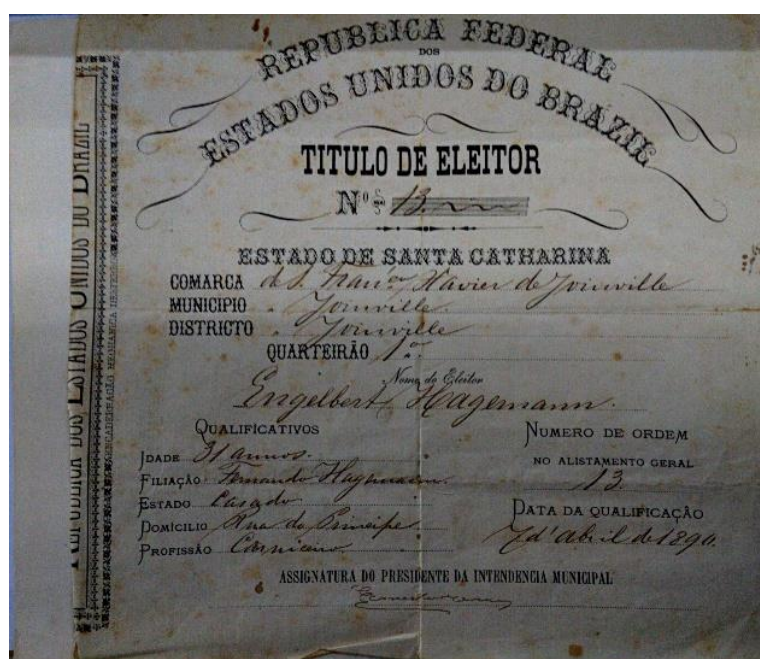 REPUBLICA FEDERAL
DOS
ESTADOS UNIDOS DO BRAZIL
TITULO DE ELEITOR
Nº 13
ESTADO DE SANTA CATHARINA
COMARCA de S. Franco Xavier de Joinville
MUNICIPIO " Joinville.
DISTRICTO " Joinville
QUARTEIRÃO 1º.
Nome do Eleitor
Engelbert Hagemann.
QUALIFICATIVOS
IDADE 31 annos.
FILIAÇÃO Fernando Hagemann.
ESTADO Casado
DOMICILIO Rua do Principe
PROFISSÃO Carniceiro
NUMERO DE ORDEM
NO ALISTAMENTO GERAL
13.
DATA DA QUALIFICAÇÃO
7 d'Abril de 1890.
ASSIGNATURA DO PRESIDENTE DA INTENDENCIA MUNICIPAL
REPUBLICA DOS ESTADOS UNIDOS DO BRAZIL